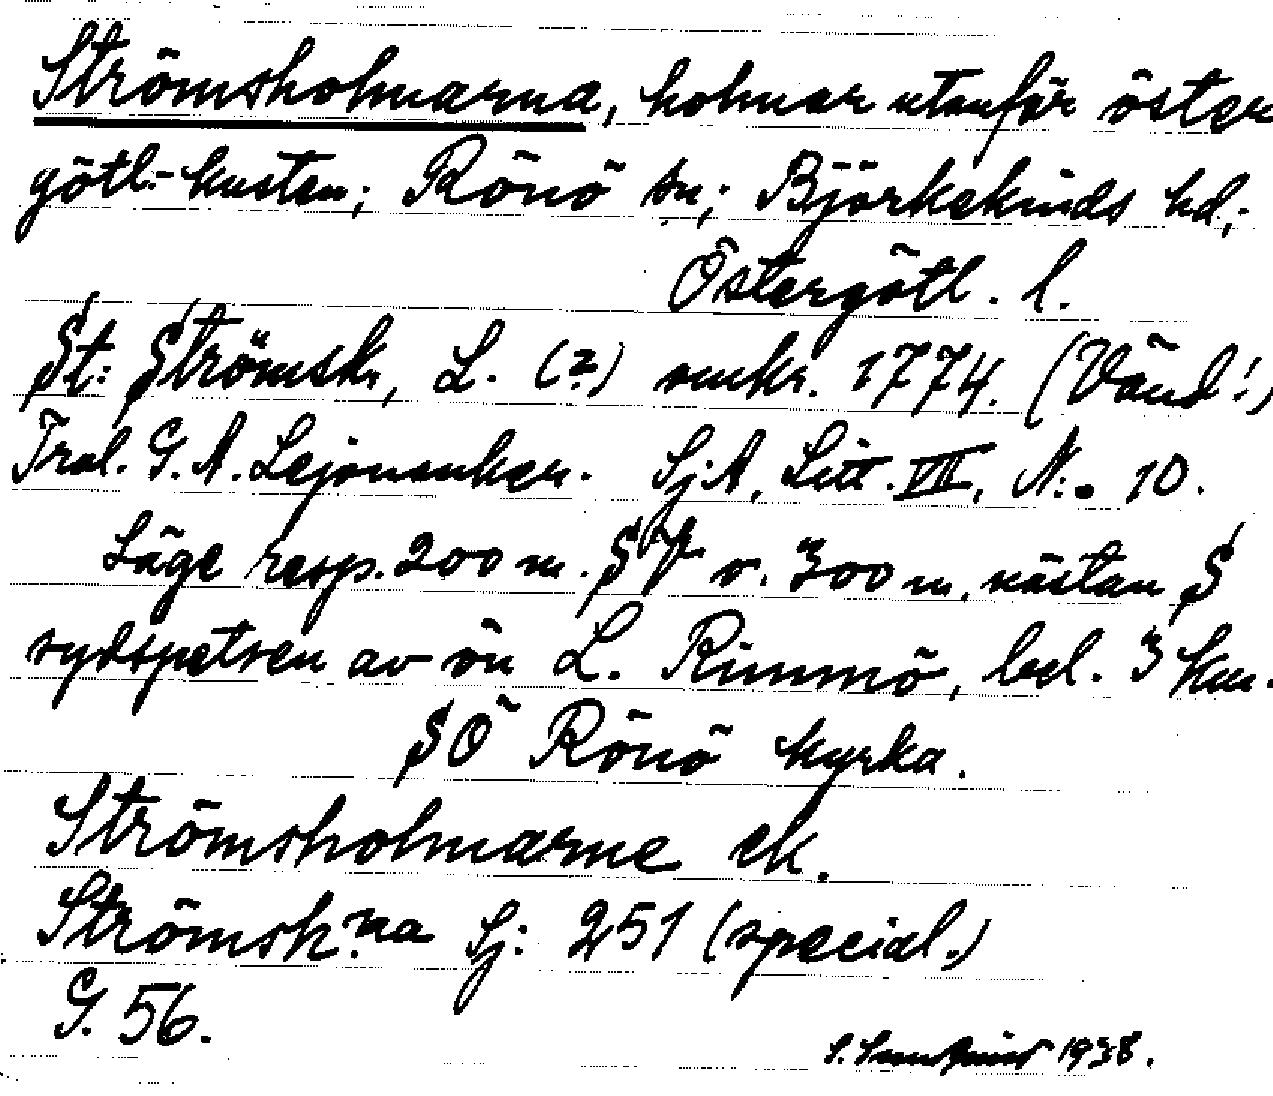 Strömsholmarna, holmar utanför öster
götl.-kusten; Rönö sn; Björkekinds hd;
Östergötl. l.
St: Strömsh, L. (?) omkr. 1774. (Vänd!)
Tral. G. A. Lejonanker. SjA, Litt. VIII, N:o 10.
Läge resp. 200 m. SV o. 300 m. nästan S
sydspetsen av ön L. Rimmö, bel. 3 km.
SO Rönö kyrka.
Strömsholmarne ek.
Strömsh:na Sj: 251 (special.)
G. 56.
1938.